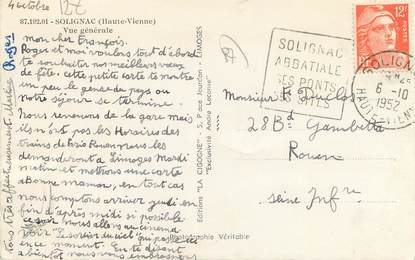 4 octobre
87.192.01 - SOLIGNAC (Haute-Vienne)
Vue générale
mon cher François,
Roger et moi voulons tout d'abord
te souhaiter nos meilleurs vœux
de fête. cette petite carte te montre
un peu le genre du pays ou
notre séjour se termine.
Nous revenons de la gare mais
ils n'ont pas les Horaires des
trains de Brive Rouen nous les
demanderont à Limoges Mardi
matin et mettrons une carte
a Bonne maman, en tout cas
nous comptons arriver jeudi en
fin d'après midi si possible
ce soir nous allons au cinéma
voir "Le sortier du ciel" qui passe ici
en ce moment. En te disant
a bientôt nous vous embrassons
tous très affectueusement.
Roger
Editions "LA CIGOGNE" - 5, Place Jourdan - LIMOGES
Reproduction Interdite
Exclusivité
Photographie Véritable
SOLIGNAC
ABBATIALE
SES PONTS
SES SITES
SOLIGNAC
6 -10
1952
HAUTE-VIENNE
12F
Monsieur F. Duclos
28 Bd Gambetta
Rouen
Seine Infre